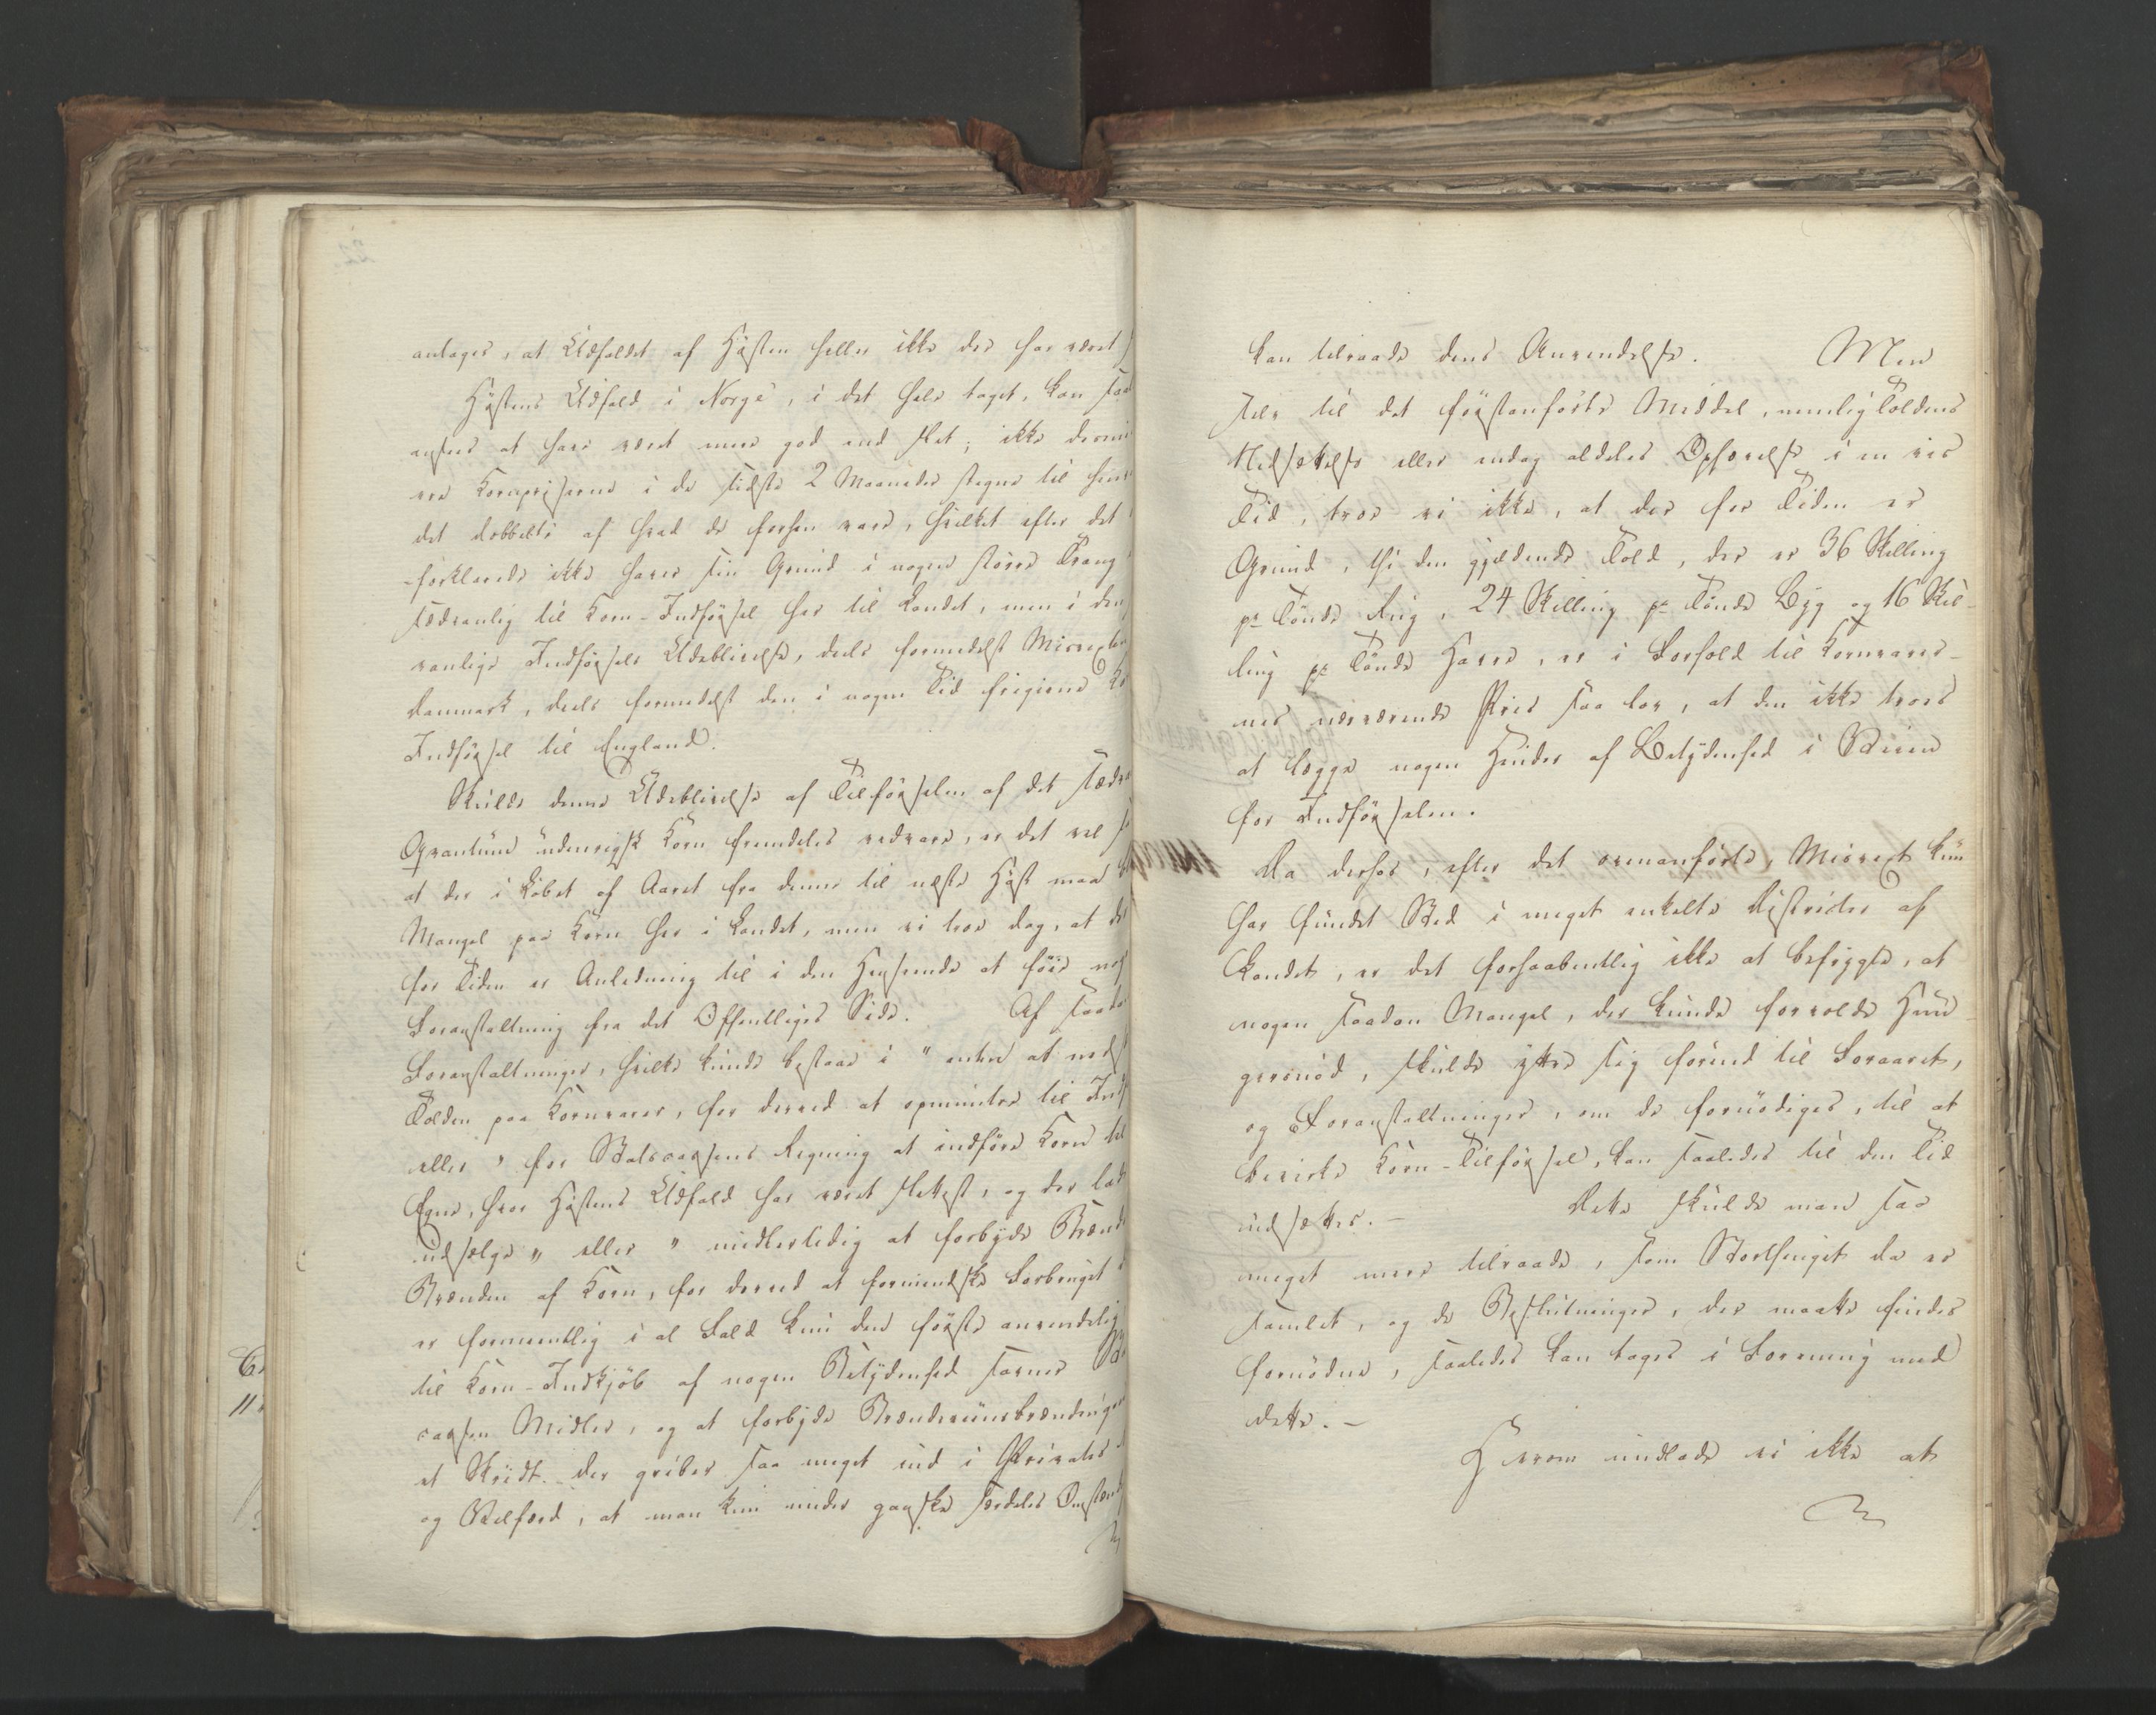 antages, at Udfaldet af Høsten heller ikke der har været
Høstens Udfald i Norge, i det hele taget, kan saa
ansees at have været mere god end slet; ikke desmin
ere Kornpriserne i de sidste 2 Maaneder stegne til hen
det dobbelte af hvad de forhen vare, hvilket efter det
forklarede ikke haver sin Grund i nogen større Trang
sædvanlig til Korn-Indførsel her til Landet, men i den
vanlige Indførsels Udeblivelse, deels formedelst Misvext
Danmark, deels formedelst den i nogen Tid frigivne Ko
Indførsel til England.
Skulde denne Udeblivelse af Tilførselen af det sædv
Qvantum udenrigsk Korn fremdeles vedvare, er det vel
at der i Løbet af Aaret fra denne til næste Høst maa
Mangel paa Korn her i Landet, men vi troe dog, at der
for Tiden er Anledning til i den Henseende at føie nog
Foranstaltning fra det Offentliges Side. Af saada
Foranstaltninger, hvilke kunde bestaae i " enten at neds
Tolden paa Kornvarer, for derved at opmuntre til Indf
eller " for Statscassens Regning at indføre Korn til
Egne, hvor Høstens Udfald har været slettest, og der lad
udsælge " eller " midlertidig at forbyde Brænde
Brænden af Korn, for derved at formindske Forbruget
er formeentlig i al Fald kun den første anvendelig
til Korn-Indkjøb af nogen Betydenhed savner Sta
cassen Midler, og at forbyde Brændeviinsbrændingen
et Skridt der griber saa meget ind i Privates
og Velfærd, at man kun under ganske særdeles Omstænd
kan tilraade dens Anvendelse. Men
selv til det førstanførte Middel, nemlig Toldens
Nedsættelse eller endog aldeles Ophævelse i en vis
Tid, troe vi ikke, at der for Tiden er
Grund, thi den gjældende Told, der er 36 Skilling
pr Tønde Rug, 24 Skilling pr Tønde Byg og 16 Skil-
ling pr Tønde Havre, er i Forhold til Kornvarer-
nes nærværende Priis saa lav, at den ikke troes
at lægge nogen Hinder af Betydenhed i Veien
for Indførselen.
Da derhos, efter det ovenanførte, Misvext kun
har fundet Sted i meget enkelte Districter af
Landet, er det forhaabentlig ikke at befrygte, at
nogen saadan Mangel, der kunde forvolde Hun-
gersnød, skulde yttre sig forend til Foraaret,
og Foranstaltninger, om de fornødiges, til at
bevirke Korn-Tilførsel, kan saaledes til den Tid
udsættes.- Dette skulde man saa
meget mere tilraade, som Storthinget da er
samlet, og de Beslutninger, der maatte findes
fornødne, saaledes kan tages i Forening med
dette.-
Herom undlade vi ikke at